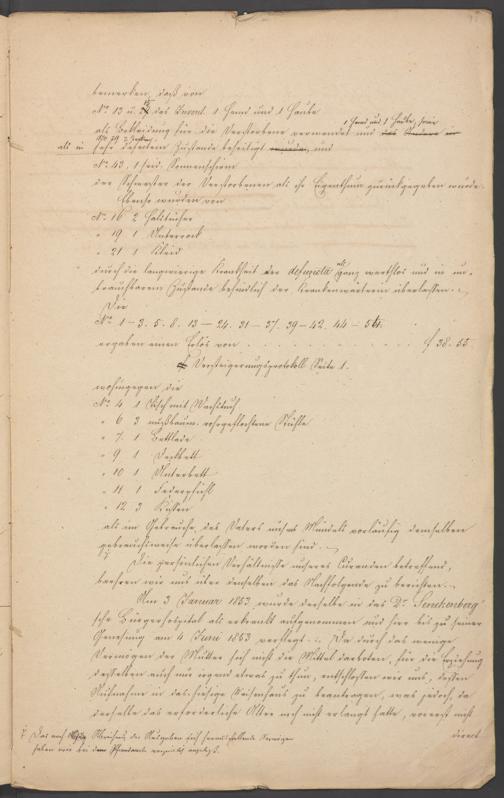 bemerken, daß von
No 13 u. 24 des Invent. 1 Hemd und 1 Haube
1 Hemd und 1 Haube, sowie
als Bekleidung für die Verstorbene verwendet und
als in sehr defectem Zustande beseitigt und
No 43. 1 seid. Sonnenschirm
der Schwester der Verstorbenen als ihr Eigenthum zurückgegeben wurde.
Ebenso wurden von
No 16 2 Halstücher
" 19 1 Unterrock
" 21 1 Kleid
durch die langwierige Krankheit der defuncta als ganz werthlos und in un-
brauchbarem Zustande befindlich der Krankenwärterin überlassen.
Die
No 1-3. 5. 8. 13-24. 31-37. 39-42. 44-54.
ergaben einen Erlös von . . . . . . f 38. 55
Versteigerungsprotokoll Seite 1.
wohingegen die
No 4 1 Tisch mit Wachstuch
" 6 3 nußbaum. rohrgeflochtene Stühle
" 7. 1 Bettlade
" 9 1 Deckbett
" 10 1 Unterbett
" 11 1 Federpfühl
" 12 3 Kissen
als im Gebrauche des Vaters unseres Mündels vorläufig demselben
gebrauchsweise überlassen worden sind.
Die persönlichen Verhältnisse unseres Curanden betreffend,
beehren wir uns über denselben das Nachfolgende zu berichten.
Am 3 Januar 1863 wurde derselbe in das Dr. Senckenberg'
sche Bürgerhospital als erkrankt aufgenommen und hier bis zu seiner
Genesung am 4 Juni 1863 verpflegt. Da durch das wenige
Vermögen der Mutter sich nicht die Mittel darboten, für die Erziehung
desselben auch nur irgend etwas zu thun, entschlossen wir uns, dessen
Aufnahme in das hiesige Waisenhaus zu beantragen, was jedoch, da
derselbe das erforderliche Alter noch nicht erlangt hatte, vorerst nicht
direct
Das nach Abzug der Ausgaben sich herausstellende Vermögen
haben wir bei dem Pfandamte verzinslich angelegt.